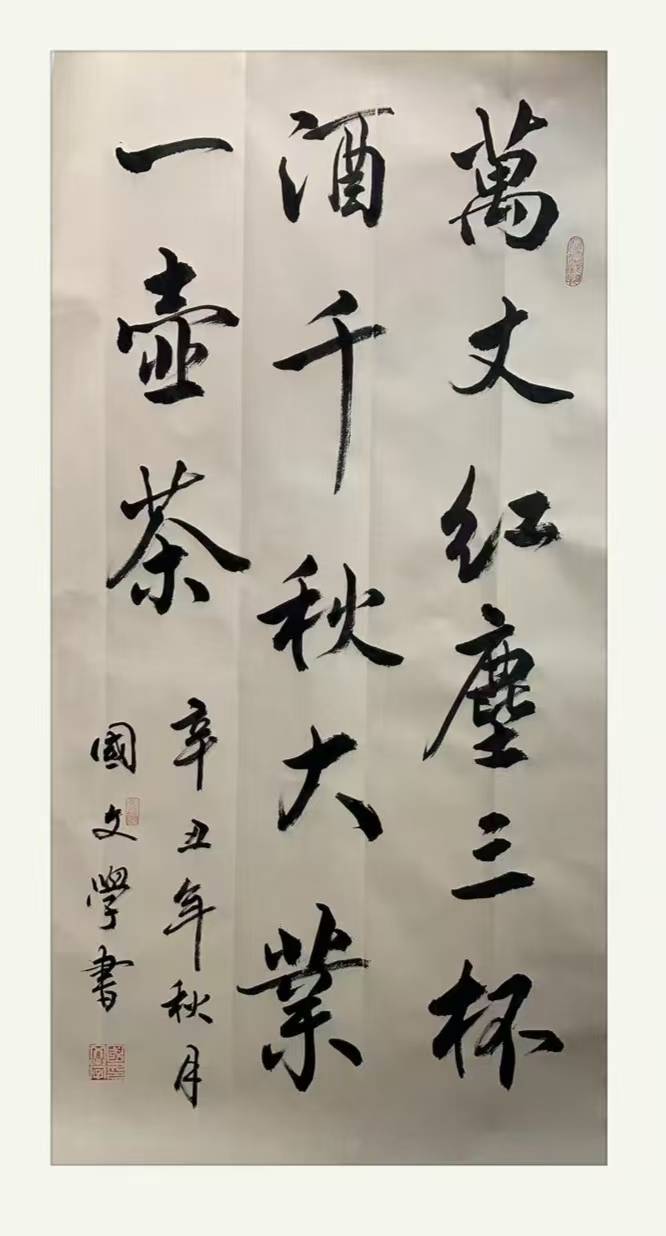 萬丈紅塵三杯
酒千秋大業
一壺茶
辛丑年秋月
國文學書